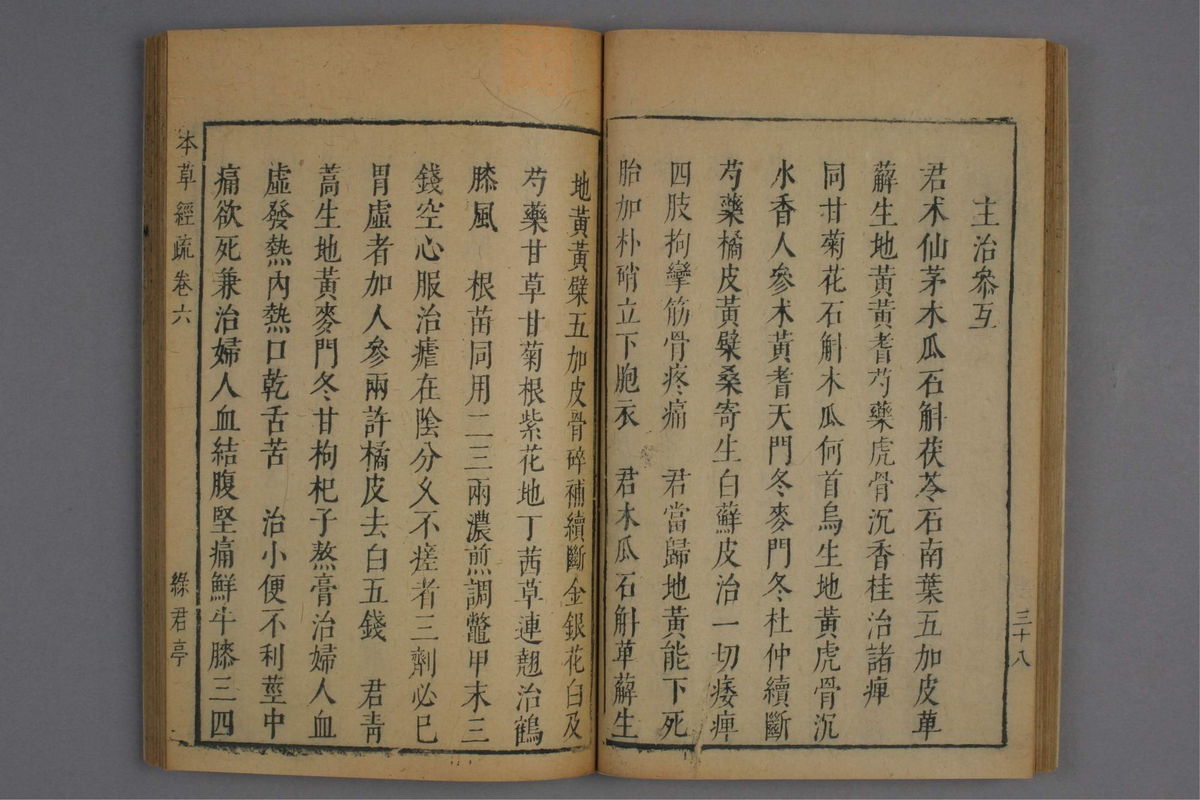 主治叅互
君朮仙茅木瓜石斛茯苓石南葉五加皮萆
薢生地黃黃耆芍藥虎骨沉香桂治諸痺
同甘菊花石斛木瓜何首烏生地黃虎骨沉
水香人參朮黃耆天門冬麥門冬杜仲續斷
芍藥橘皮黃檗桑寄生白鮮皮治一切痿痺
四肢拘攣筋骨疼痛　君當歸地黃能下死
胎加朴硝立下胞衣　君木瓜石斛萆薢生
三十八
地黃黃檗五加皮骨碎補續斷金銀花白及
芍藥甘草甘菊根紫花地丁茜草連翹治鶴
膝風　根苗同用二三兩濃煎調鼈甲末三
錢空心服治瘧在陰分久不瘥者三劑必已
胃虛者加人參兩許橘皮去白五錢　君靑
蒿生地黃麥門冬甘枸杞子熬膏治婦人血
虛發熱內熱口乾舌苦　治小便不利莖中
痛欲死兼治婦人血結腹堅痛鮮牛膝三四
本草經疏卷六
綠君亭